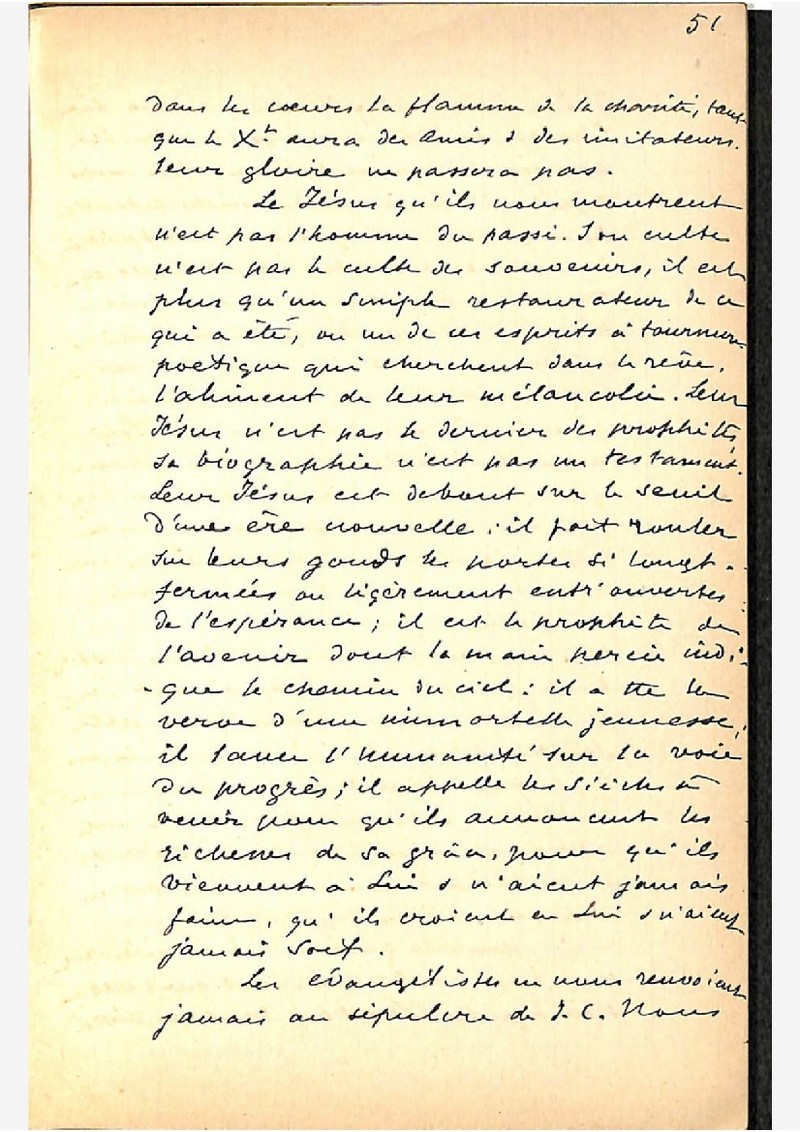 51
dans les cœurs la flamme de la charité, tant
que le Xt aura des amis & des imitateurs.
leur gloire ne passera pas.
Le Jésus qu'ils nous montrent
n'est pas l'homme du passé. Son culte
n'est pas le culte des souvenirs, il est
plus qu'un simple restaurateur de ce
qui a été, ou un de ces esprits à tournure
poétique qui cherchent dans le rêve,
l'aliment de leur mélancolie. Leur
Jésus n'est pas le dernier des prophètes,
sa biographie n'est pas un testament.
Leur Jésus est debout sur le seuil
d'une ère nouvelle ; il fait rouler
sur leurs gonds les portes si longt.
fermées ou légèrement entr'ouvertes
de l'espérance ; il est le prophète de
l'avenir dont la main percée indi-
-que le chemin du ciel : il a tte la
verve d'une immortelle jeunesse,
il lance l'humanité sur la voie
du progrès ; il appelle les siècles à
venir pour qu'ils annoncent les
richesses de sa grâce, pour qu'ils
viennent à Lui & n'aient jamais
faim, qu'ils croient en Lui & n'aient
jamais soif.
Les évangélistes ne nous renvoient
jamais au sépulcre de J. C. Nous